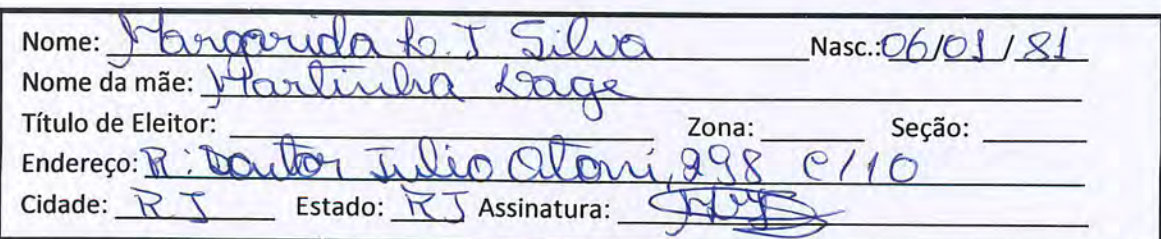 Nome: Margarida L. J Silva Nasc.: 06/01/81
Nome da mãe: Martinha Lage
Título de Eleitor: Zona: Seção:
Endereço: R: Doutor Julio Otoni, 298 C/10
Cidade: RJ Estado: RJ Assinatura: